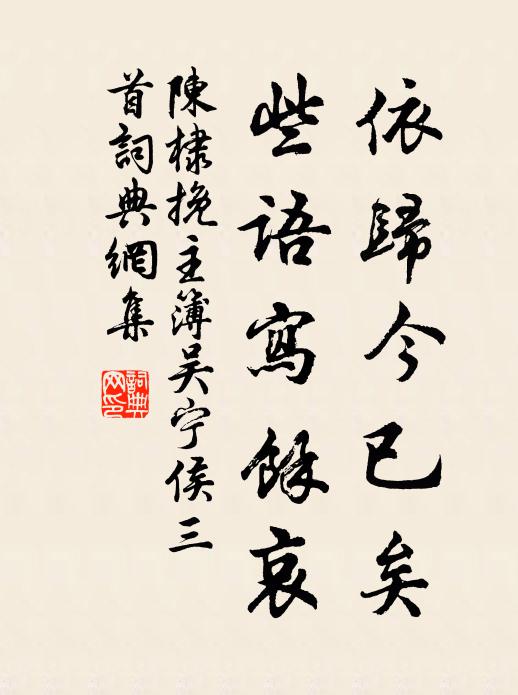 依歸今已矣
些語寫餘哀
陳棣挽主簿吴宁侯三
首詞典網集
詞典
网印